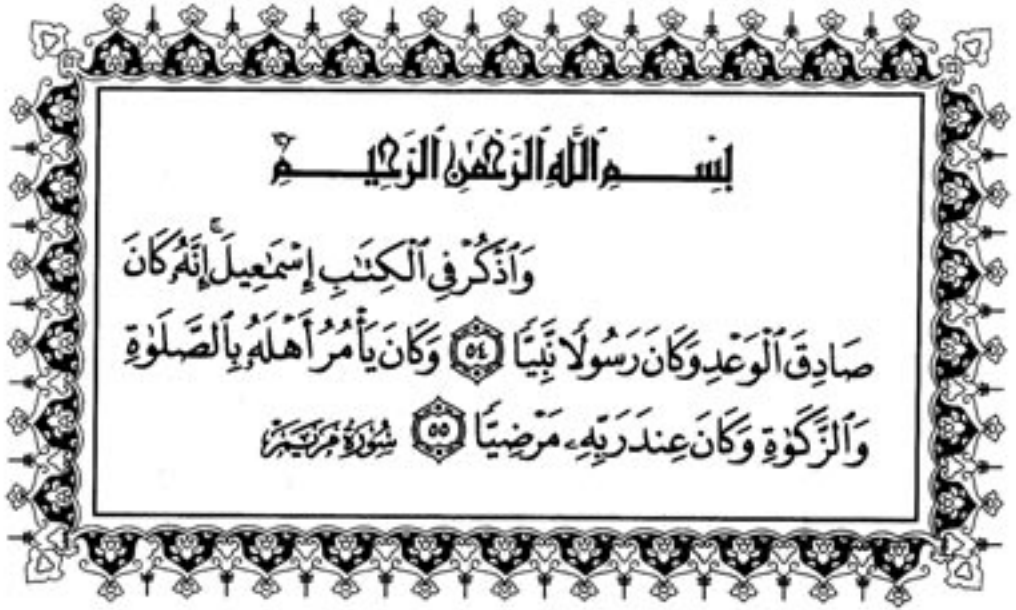 بِسْمِ ٱللَّهِ ٱلرَّحْمَٰنِ ٱلرَّحِيمِ
وَٱذْكُرْ فِي ٱلْكِتَٰبِ إِسْمَٰعِيلَۚ إِنَّهُۥ كَانَ
صَادِقَ ٱلْوَعْدِ وَكَانَ رَسُولًا نَّبِيًّا ٥٤ وَكَانَ يَأْمُرُ أَهْلَهُۥ بِٱلصَّلَوٰةِ
وَٱلزَّكَوٰةِ وَكَانَ عِندَ رَبِّهِۦ مَرْضِيًّا ٥٥ سُورَةُ مَرْيَمَ